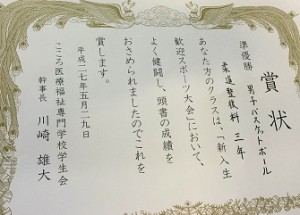 賞状
準優勝 男子バスケットボール
柔道整復科 三年
あなた方のクラスは、「新入生
歓迎スポーツ大会」において、
よく健闘し、頭書の成績を
おさめられましたのでこれを
賞します。
平成二七年五月二九日
こころ医療福祉専門学校学生会
幹事長 川崎 雄大